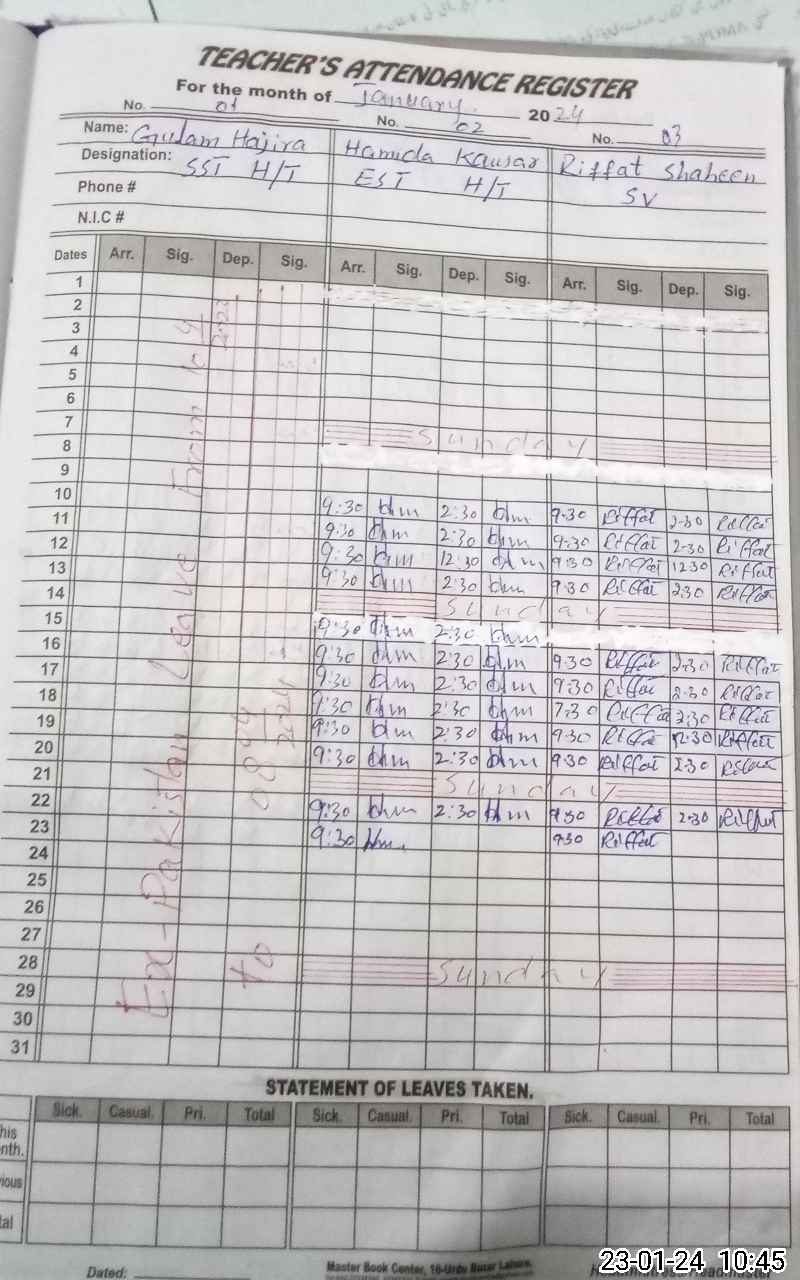 TEACHER'S ATTENDANCE REGISTER
For the month of January 2024
No. 01 No. 02 No. 03
Name: Gulam Hajira Hamida Kausar Riffat Shaheen
Designation: SST H/T EST H/T SV
Phone #
N.I.C #
Dates Arr. Sig. Dep. Sig. Arr. Sig. Dep. Sig. Arr. Sig. Dep. Sig.
1
2
3
4
5
6
7 Sunday
8
9
10
11 9:30 2:30 9:30 Riffat 2:30 Riffat
12 9:30 2:30 9:30 Riffat 2:30 Riffat
13 9:30 12:30 9:30 Riffat 12:30 Riffat
14 9:30 2:30 9:30 Riffat 2:30 Riffat
Sunday
15 9:30 2:30
16 9:30 2:30 9:30 Riffat 2:30 Riffat
17 9:30 2:30 9:30 Riffat 2:30 Riffat
18 9:30 2:30 7:30 Riffat 2:30 Riffat
19 9:30 2:30 9:30 Riffat 12:30 Riffat
20 9:30 2:30 9:30 Riffat 2:30 Riffat
21 Sunday
22 9:30 2:30 9:30 Riffat 2:30 Riffat
23 9:30 9:30 Riffat
24
25
26
27
28 Sunday
29
30
31
Ex-Pakistan Leave from
to
STATEMENT OF LEAVES TAKEN.
Sick. Casual. Pri. Total Sick. Casual. Pri. Total Sick. Casual. Pri. Total
Dated:
Master Book Center, 16-Urdu Bazar Lahore.
23-01-24 10:45